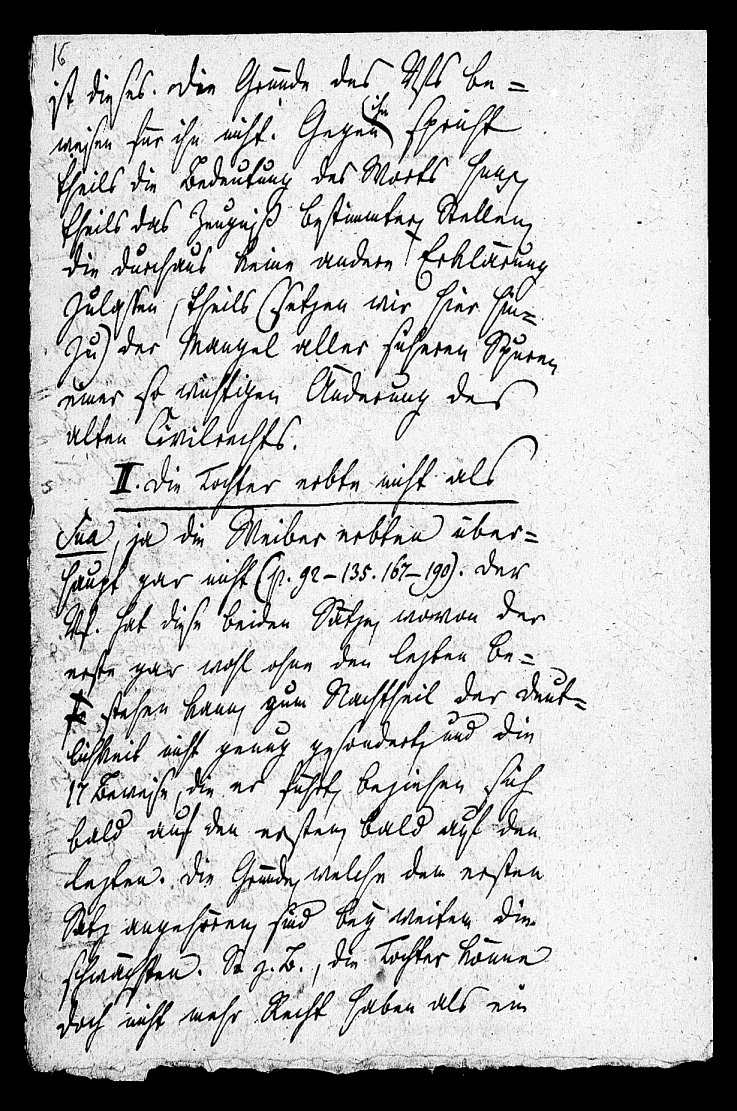 16
ist dieses. Die Gründe des Vfs be=
weisen für ihn nicht. Gegen ihn spricht
theils die Bedeutung des Worts suus,
theils das Zeugniß bestimmter Stellen,
die durchaus keine andere Erklärung
zulassen, theils (setzen wir hier hin=
zu) der Mangel aller sicheren Spuren
einer so wichtigen Änderung des
alten Civilrechts.
II. Die Tochter erbte nicht als
Sua, ja die Weiber erbten über=
haupt gar nicht (p. 92–135. 167–190). Der
Vf. hat diese beiden Sätze, wovon der
erste gar wohl ohne den lezten be=
stehen kann, zum Nachtheil der Deut=
lichkeit nicht genug gesondert, und die
17 Beweise, die er führt, beziehen sich
bald auf den ersten, bald auf den
lezten. Die Gründe, welche dem ersten
Satz angehören, sind bey weitem die
schwächsten. So z. B., die Tochter könne
doch nicht mehr Recht haben als ein